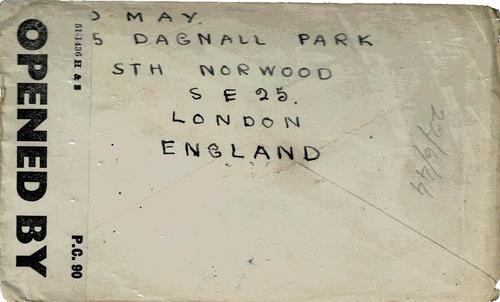 MAY.
5 DAGNALL PARK
STH NORWOOD
S E 25.
LONDON
ENGLAND
OPENED BY
P.C. 90
51-1436 H & S
22/6/44